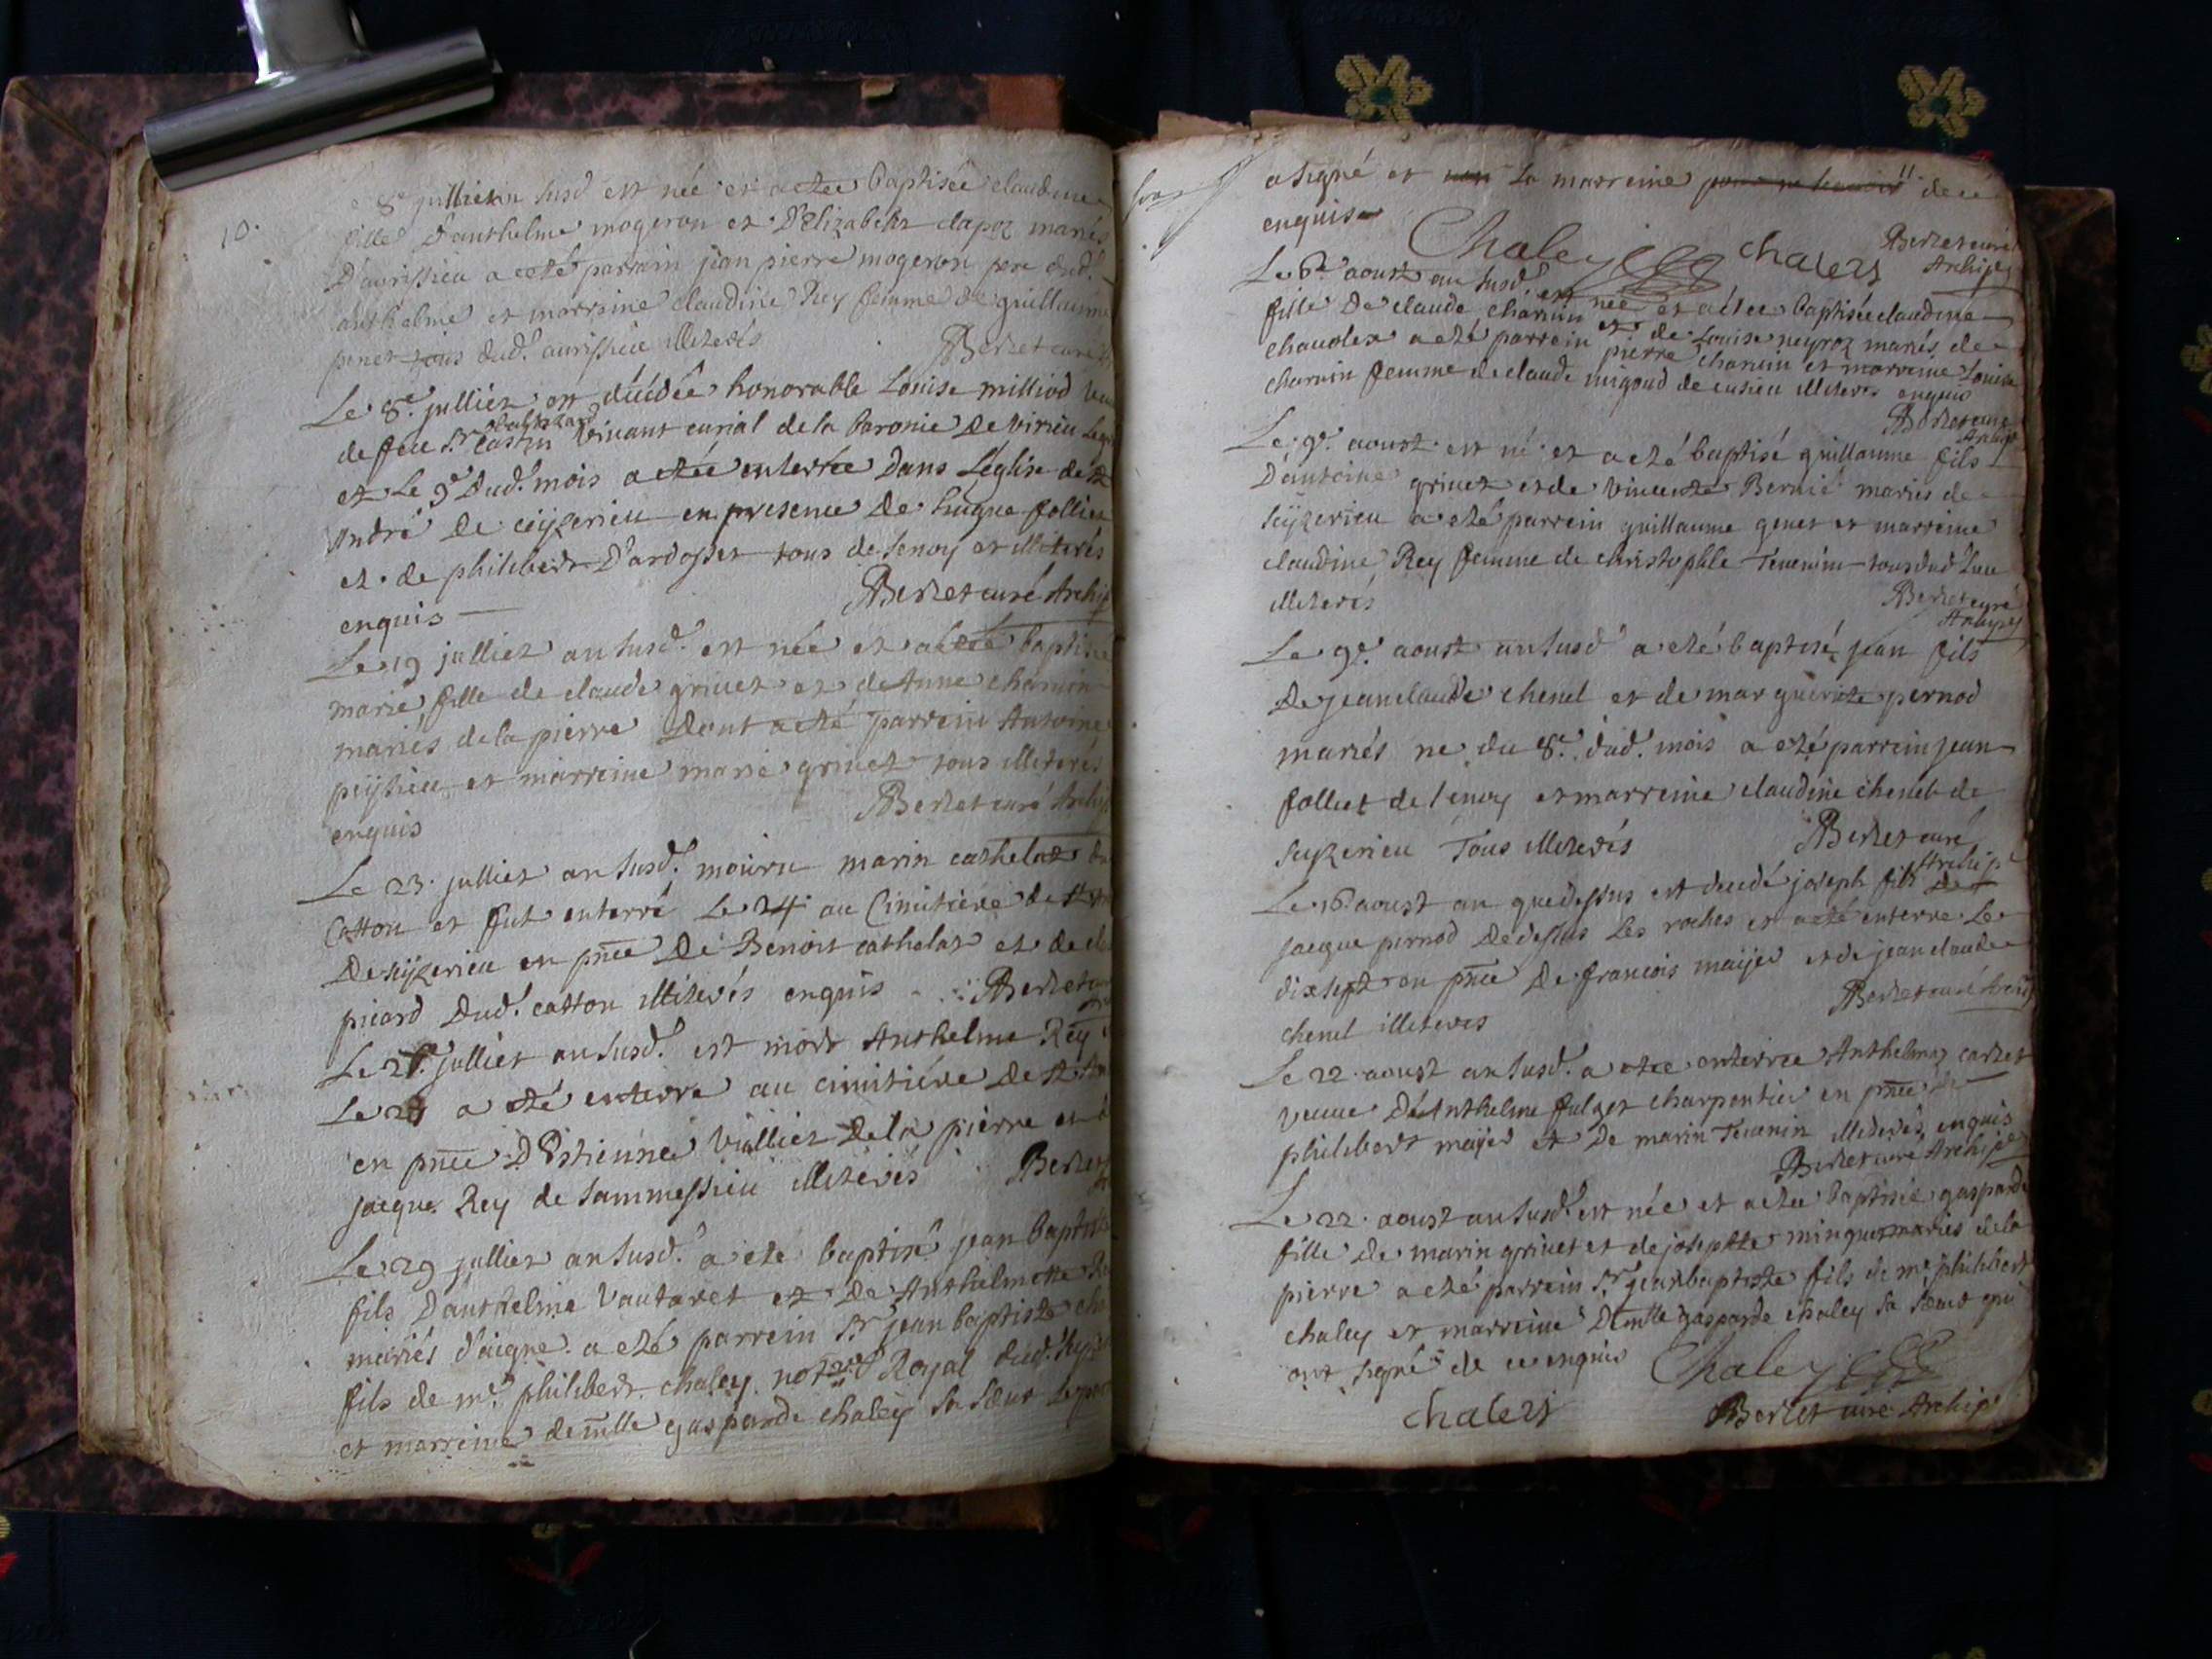 10.
8e julliet an susd. est née et a etee baptisée claudine
fille d'anthelme mogeron et d'Elizabeth clapoz mariés
D'aurissieu a eté parrain jean pierre mogeron pere dud.
anthelme et marreine claudine Rey femme de guillaume
penet tous dud. aurissieu illiterés
Berlet curé
Le 8e. julliet est décédée honorable Louise milliod
de feu Sr. balthazard Castin vivant curial de la baronie de virieu
et Le 9e dud. mois a etée enterrée dans L'église de st
André de ceyzerieu en presence de hugue folliet
et de philibert D'ardosset tous de senoy et illiterés
enquis
Berlet curé Archip
Le 19 julliet an susd. est née et a etée baptisée
marie fille de claude grinet et de Anne charnin
mariés de la pierre dont a eté parrein Antoine
peysieu et marreine marie grinet tous illiterés
enquis
Berlet curé Archip
Le 23. julliet an susd. mouru marin cathelaz du
Catton et fut enterré Le 24 au Cimitière de st
de ceyzerieu en pnce De Benoit cathelaz et de
picard dud. catton illiterés enquis
Berlet
julliet an susd. est mort Anthelme Rey
a eté enterré au cimitiére de st
en pnce D'Estienne Vulliez de la pierre et
jacque Rey de sammessieu illiterés
Berlet
Le 29 julliet an susd. a eté baptisé jean baptiste
fils d'anthelme Vautaret et de Anthelmette
mariés d'aigne. a eté parrein Sr. jean baptiste
fils de me. philibert chaley notre Royal dud.
et marreine demlle gasparde chaley sa soeur
a signé et non La marreine de ce
enquise
Chaley chalei
Berlet curé
Archip
Le 6e aoust an susd. est née et a étee baptisée claudine
fille De claude charnin et de Louise neyroz mariés de
chavolex a eté parrein pierre charnin et marreine Louise
charnin femme de claude migoud de cusieu illiterés enquis
Berlet curé
Archip
Le 9e. aoust est né et a eté baptisé guillaume fils
D'antoine grinet et de Vincente Bernié mariés de
seyzerieu a eté parrein guillaume genet et marreine
claudine Rey femme de christophle Tevenin tous dud. Lieu
illiterés
Berlet curé
Archip
Le 9e. aoust an susd. a eté baptisé jean fils
De jean claude chenel et de marguerite pernod
mariés ne du 8e. dud. mois a eté parrein jean
folliet de senoy et marreine claudine chenel de
seyzerieu Tous illiterés
Berlet curé
Archip
Le 16 aoust an que dessus est decedé joseph fils De
jacque pernod De dessus Les roches et a eté enterre Le
dix sept en pnce De francois maijer et de jean claude
chenel illiterés
Berlet curé Archip
Le 22. aoust an susd. a etee enterree Anthelmaz carlet
veuve D'Anthelme fulget charpentier en pnce de
philibert maijer et De marin Tevenin illiterés enquis
Berlet curé Archip
Le 22. aoust an susd. est née et a etee baptisée gasparde
fille de marin grinet et de josephte minguet mariés de la
pierre a eté parrein Sr. jean baptiste fils de me philibert
chaley et marreine Demlle gasparde chaley sa soeur qui
ont signé de ce enquis
Chaley
chalei
Berlet curé Archip